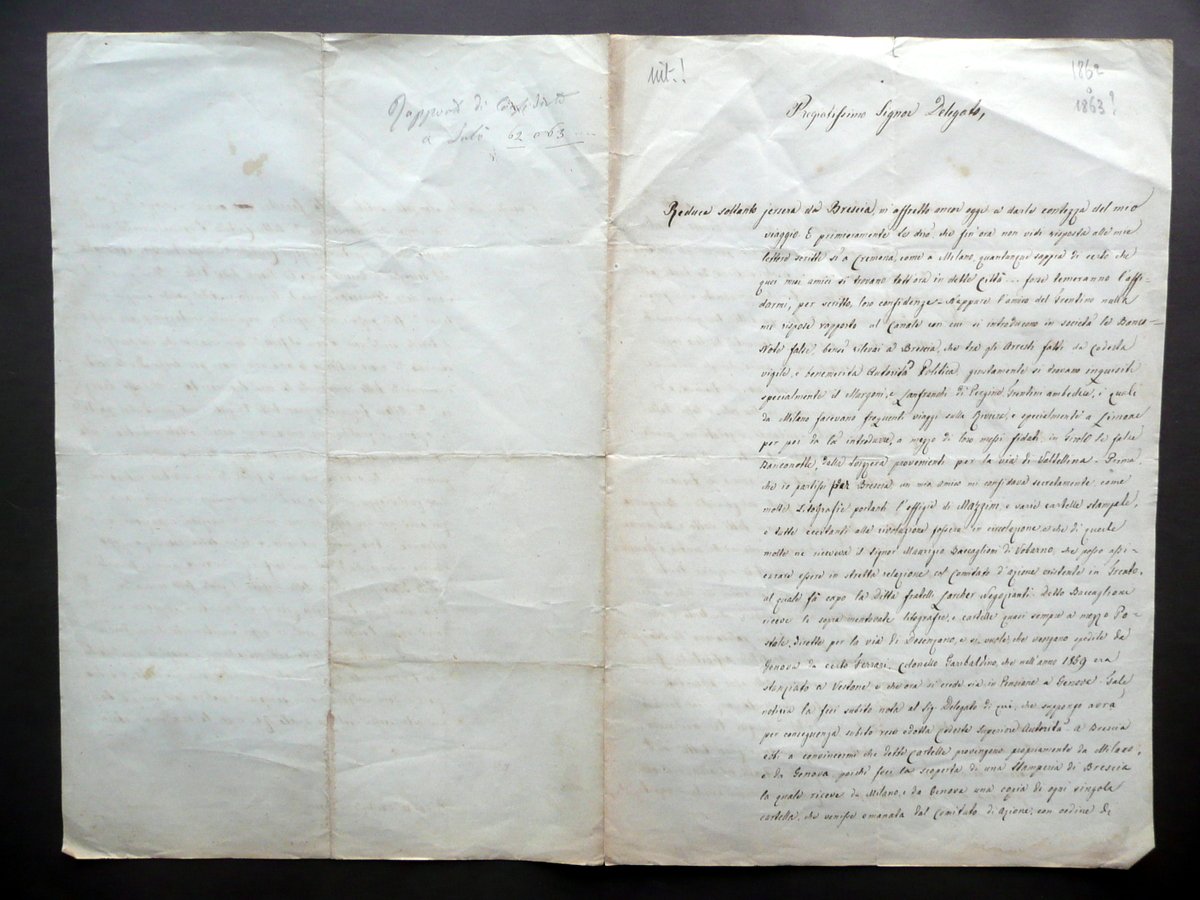 Rapporto di Confidente
a Salò 62 o 63
int.!
1862
o
1863?
Pregiatissimo Signor Delegato,
Reduce soltanto jersera da Brescia, m'affretto ancor oggi a darle contezza del mio
viaggio. E primieramente Le dirò, che fin'ora non vidi risposta alle mie
lettere scritte sì a Cremona, come a Milano, quantunque sappia di certo che
quei miei amici si trovano tutt'ora in dette Città... forse temeranno l'affi-
darmi, per scritto, loro confidenze. Neppure l'amico del Trentino nulla
mi rispose rapporto al Canale con cui si introducono in società le Banco-
Note false, bensì rilevai a Brescia, che tra gli Arresti fatti da codesta
vigile, e benemerita Autorità Politica, giustamente si trovano inquisiti
specialmente il Marzoni, e Lanfranchi di Pergine, Trentini ambedue, i quali
da Milano facevano frequenti viaggi sulla Riviera, e specialmente a Limone
per poi da là introdurre, a mezzo di loro messi fidati, in Tirolo le false
Banconotte, dalla Svizzera provenienti per la via di Valtellina. Prima
che io partissi per Brescia un mio amico mi confidava secretamente, come
molti Litografie portanti l'effigie di Mazzini, e varie cartelle stampate,
e tutte eccitanti alla rivoluzione fossero in circolazione, e che di queste
molte ne riceveva il Signor Maurizio Baccaglioni di Vobarno, che posso assi-
curare essere in stretta relazione col Comitato d'azione esistente in Trento,
al quale fà capo la ditta fratelli Larcher Negozianti. Detto Baccaglioni
riceve le sopra mentovate litografie, e cartelle quasi sempre a mezzo Po-
stale, dirette per la via di Desenzano, e si vuole, che vengano spedite da
Genova da certo Ferrari, Colonello Garibaldino, che nell'anno 1859 era
stanziato a Vestone, e che ora si crede sia in Pensione a Genova. Tale
notizia la feci subito nota al Sig. Delegato di qui, che suppongo avrà
per conseguenza subito reso edotta Codesta Superiore Autorità. A Brescia
ebbi a convincermi che dette cartelle provengono propriamente da Milano,
e da Genova poichè feci la scoperta di una Stamperia di Brescia
la quale riceve da Milano, e da Genova una copia di ogni singola
cartella, che venisse emanata dal Comitato di Azione, con ordine di